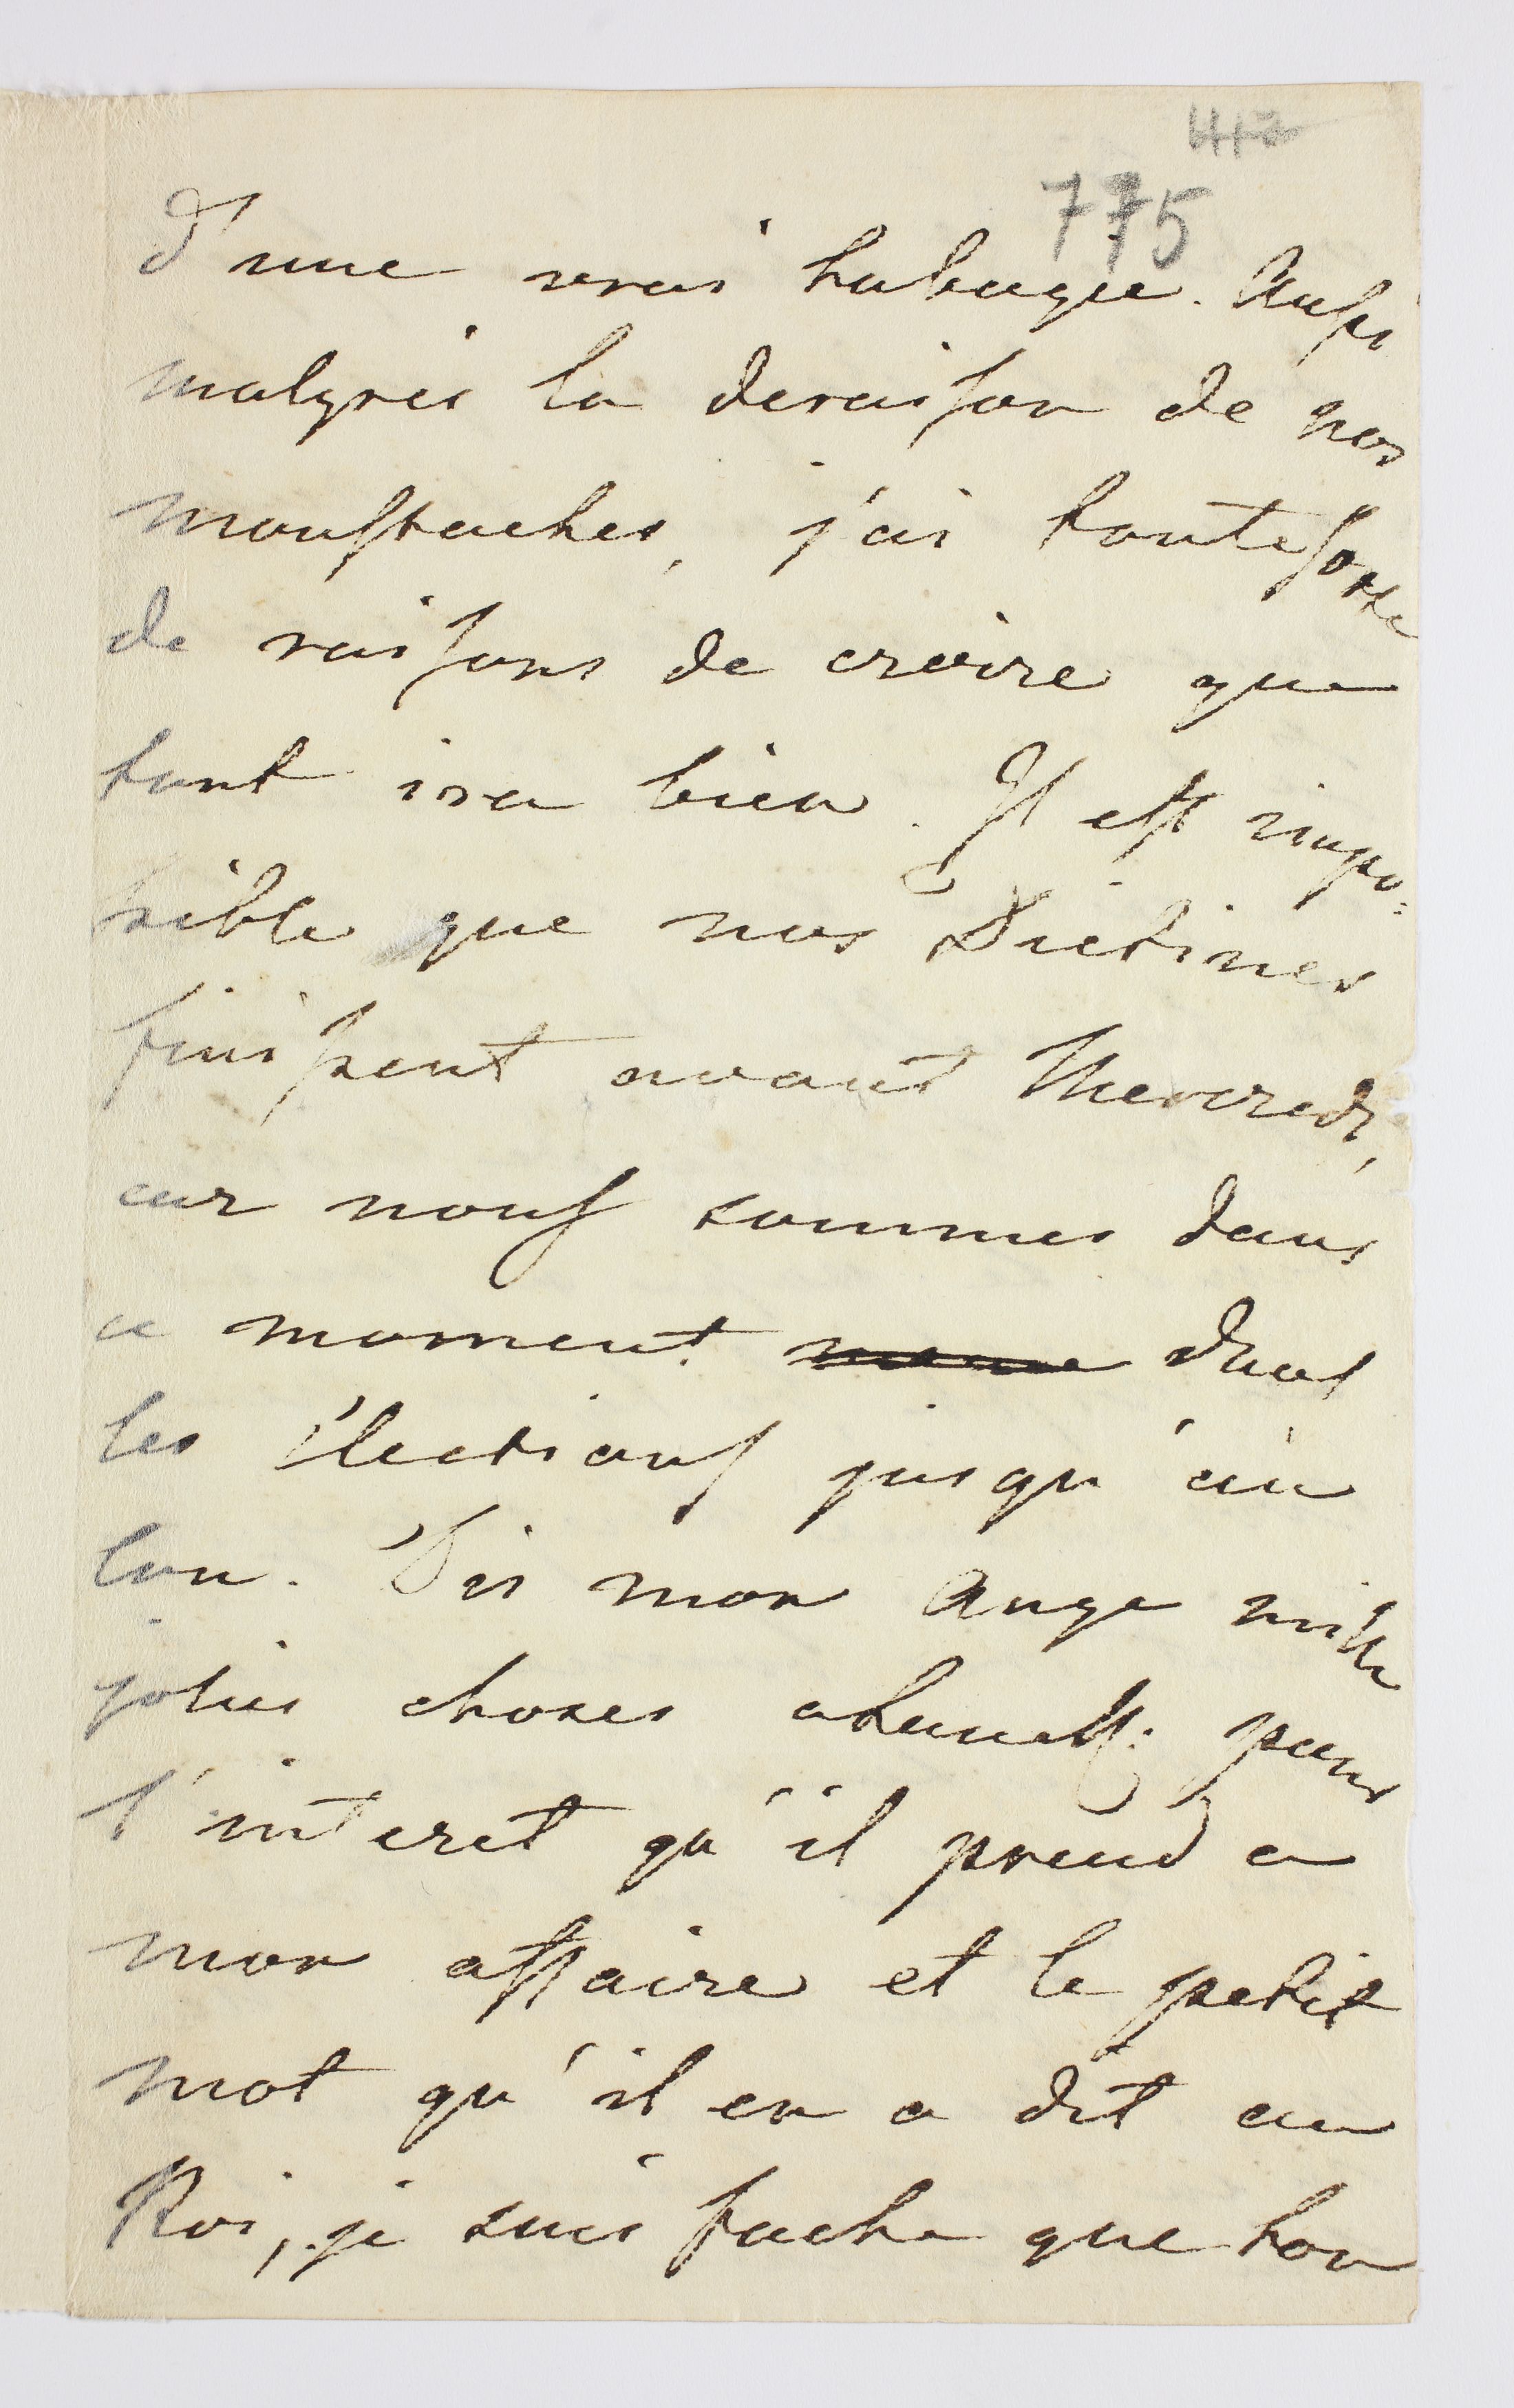 775
d'une vrai halenque. Aussi
malgres la deraison de nos
moustaches, j'ai toute sorte
de raisons de croire que
tout ira bien. Il est impo=
ssible que nos Dietines
finissent avant Mercredi,
car nous sommes dans
ce moment dans
les élections jusqu'au
cou. Dis mon Ange mille
jolies choses pour
l'interet qu'il prend a
mon affaire et le petit
mot qu'il en a dit au
Roi, je suis fache que ton